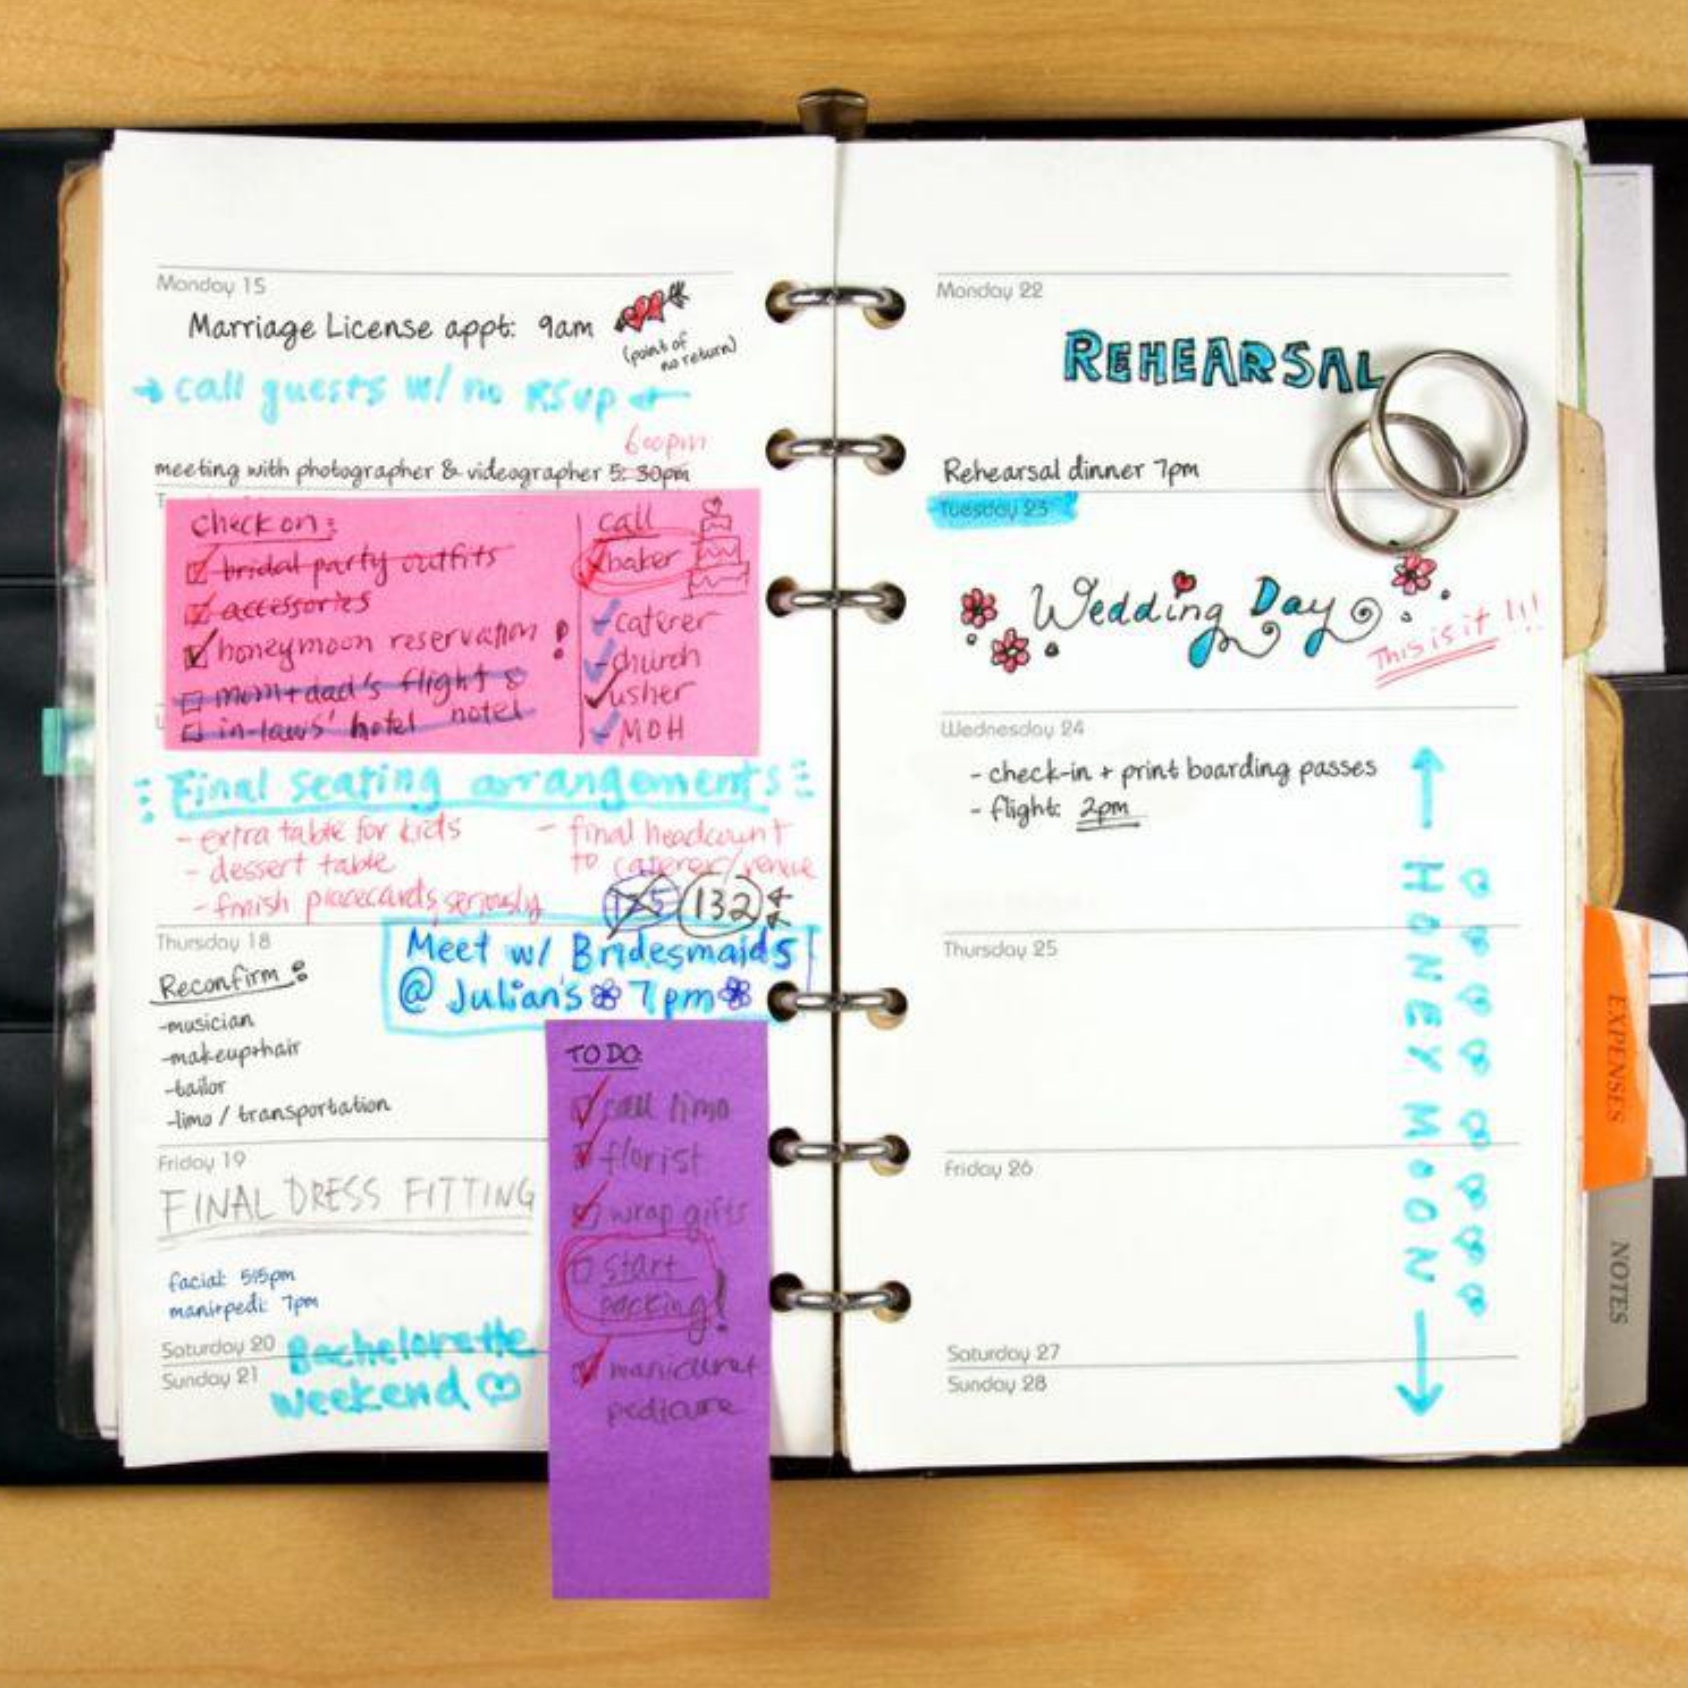 Monday 15
Marriage License appt: 9am
(point of
no return)
→ call guests w/ no RSVP ←
6:00pm
meeting with photographer & videographer 5:30pm
check on:
bridal party outfits
accessories
honeymoon reservation!
mom+dad's flights
in-laws' hotel
call
baker
caterer
church
usher
MOH
Final seating arrangements
- extra table for kids
- dessert table
- finish placecards, seriously
- final headcount
to caterer/venue
132
Thursday 18
Reconfirm:
-musician
-makeup+hair
-tailor
-limo / transportation
Meet w/ Bridesmaids
@ Julian's 7pm
TO DO:
call limo
florist
wrap gifts
start
packing!
manicure+
pedicure
Friday 19
FINAL DRESS FITTING
facial: 515pm
mani+pedi: 7pm
Saturday 20
Sunday 21
Bachelorette
weekend
Monday 22
REHEARSAL
Rehearsal dinner 7pm
Tuesday 23
Wedding Day
This is it!!!
Wednesday 24
- check-in + print boarding passes
- flight: 2pm
HONEYMOON
Thursday 25
Friday 26
Saturday 27
Sunday 28
EXPENSES
NOTES